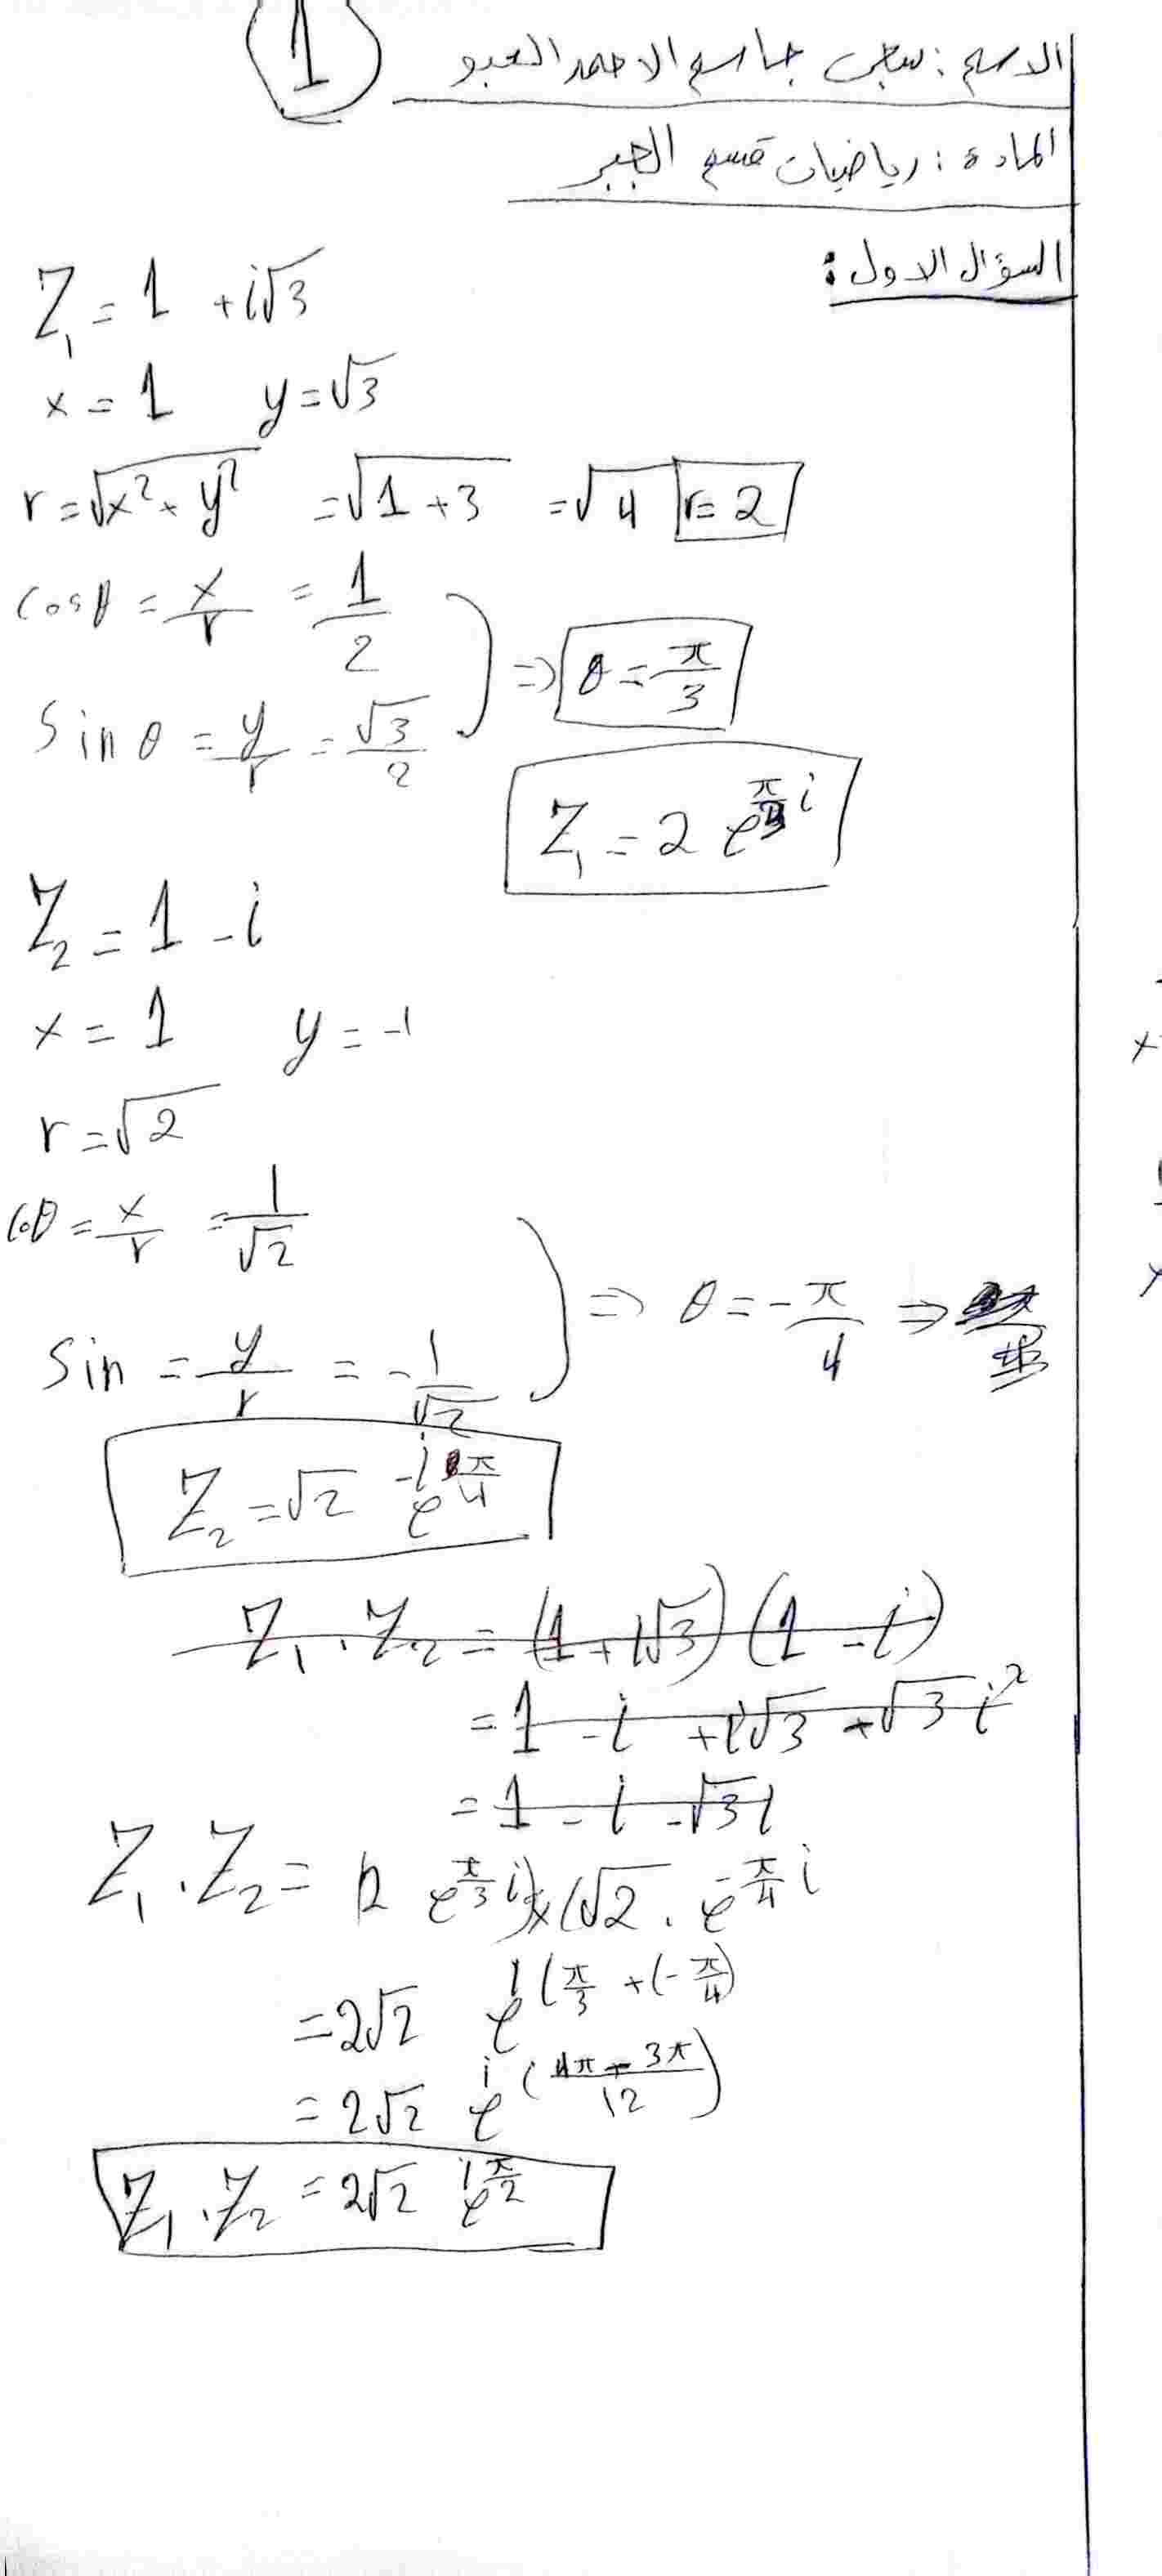 1
الاسم : سجى جاسم الاحمد العبو
المادة : رياضيات قسم الجبر
السؤال الاول :
Z₁ = 1 + i√3
x = 1 y = √3
r = √x² + y² = √1 + 3 = √4 r = 2
Cos θ = x/r = 1/2
⇒ θ = π/3
Sin θ = y/r = √3/2
Z₁ = 2 e^(π/3 i)
Z₂ = 1 - i
x = 1 y = -1
r = √2
Coθ = x/r = 1/√2
⇒ θ = -π/4 ⇒
Sin = y/r = -1/√2
Z₂ = √2 e^(-i π/4)
Z₁ . Z₂ = (1 + i√3) (1 - i)
= 1 - i + i√3 - √3 i²
= 1 - i - √3 i
Z₁ . Z₂ = (2 e^(π/3 i)) × (√2 . e^(-π/4 i)
= 2√2 e^(i(π/3 + (-π/4)
= 2√2 e^(i(4π - 3π/12))
Z₁ . Z₂ = 2√2 e^(i π/2)